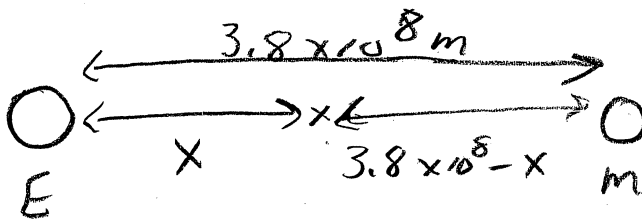 3.8 x 10⁸ m
x
X
3.8 x 10⁸ - x
E
m